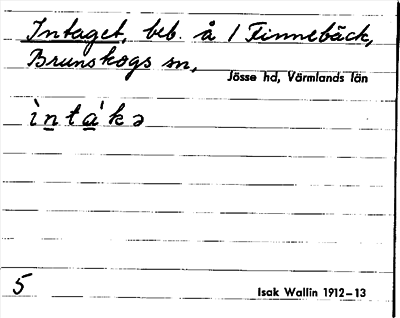 Intaget, beb. å 1 Finnebäck,
Brunskogs sn,
Jösse hd, Värmlands län
ìntákə
5
Isak Wallin 1912–13